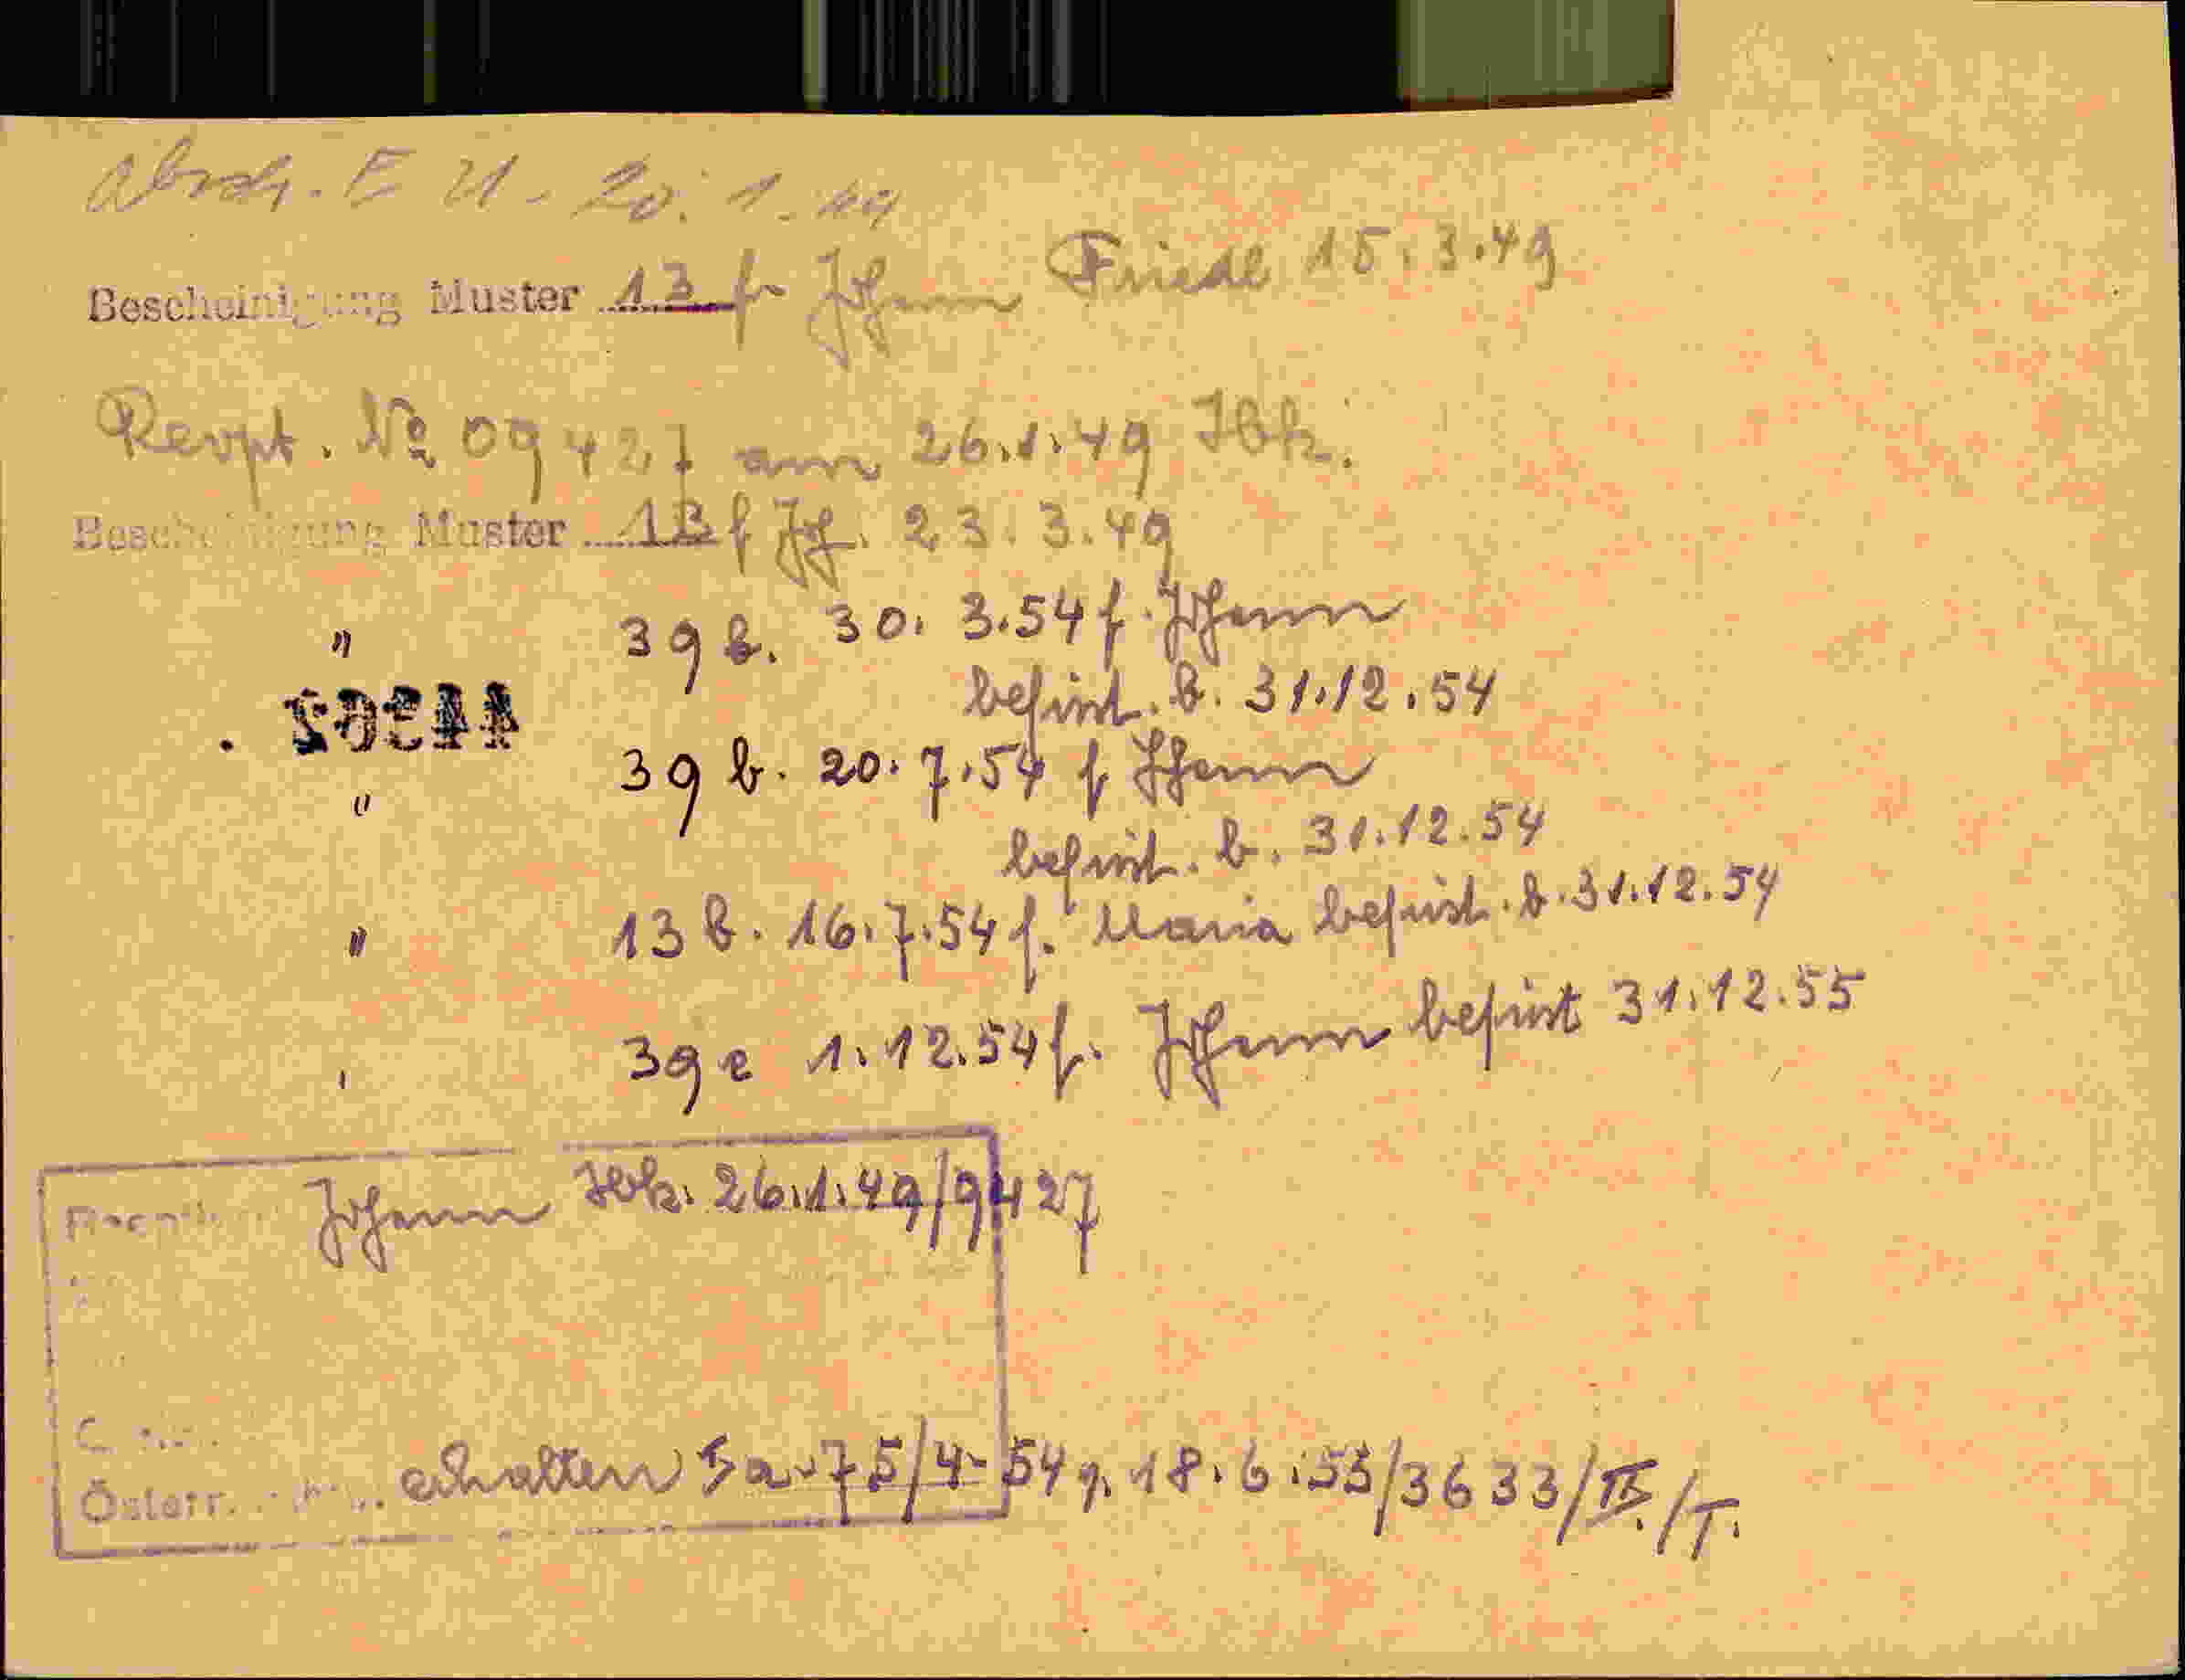 Absch. E 21 - 20. 1. 49
Bescheinigung Muster 13 f. Johann Friedl 15.3.49
Revpt. № 09427 am 26.1.49 Ibk.
Bescheinigung Muster 13 f Joh. 23.3.49
" 39 b. 30. 3.54 f. Johann
befrist. b. 31.12.54
39 b. 20.7.54 f Johann
"
befrist. b. 31.12.54
" 13 b. 16.7.54 f. Maria befrist. b. 31.12.54
39 e 1.12.54 f. Johann befrist 31.12.55
Johann Ibk. 26.1.49/9427
Österr. erhalten 5a-75/4-54 v. 18.6.53/3633/II./T.